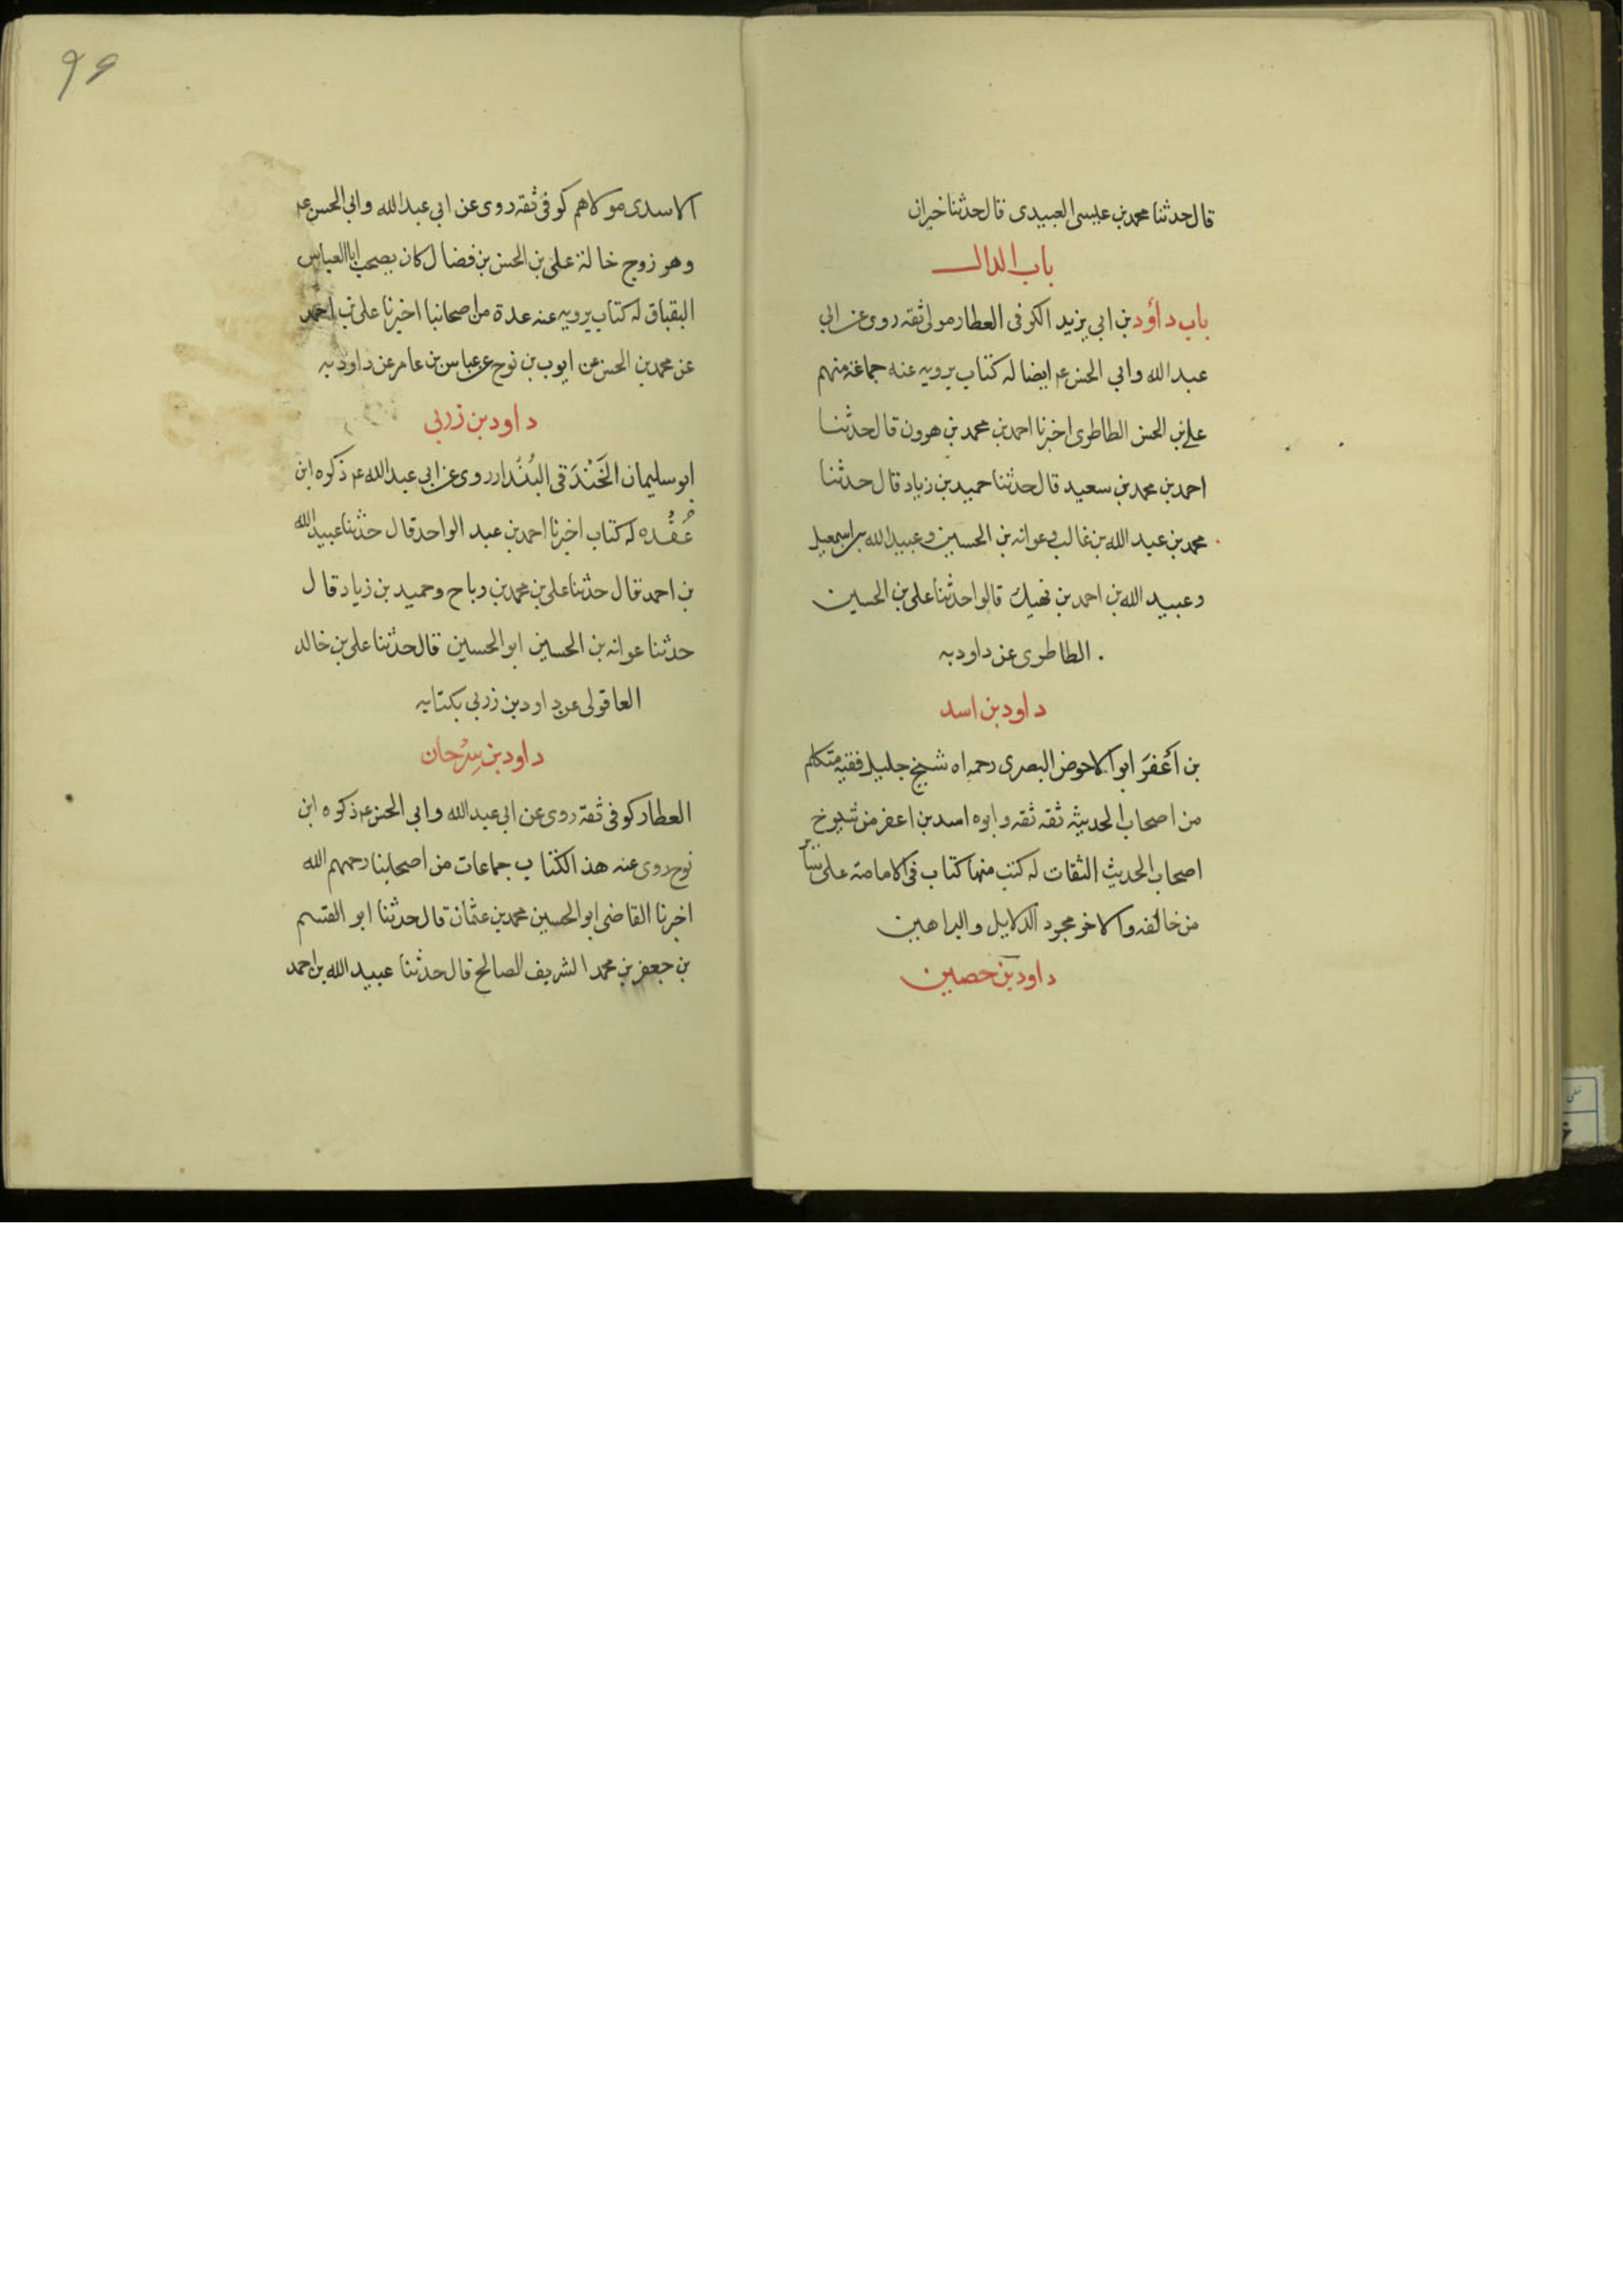 قال حدثنا محمد بن عيسى العبيدى قال حدثنا خيران
باب الدال
باب داؤد بن ابي يزيد الكوفى العطار مولى ثقه روى عن ابي
عبد الله وابي الحسن ع ايضا له كتاب يرويه عنه جماعة منهم
على بن الحسن الطاطرى اخبرنا احمد بن محمد بن هرون قال حدثنا
احمد بن محمد بن سعيد قال حدثنا حميد بن زياد قال حدثنا
محمد بن عبد الله بن غالب وعوانه بن الحسين وعبيد الله بن اسمعيل
وعبيد الله بن احمد بن نهيك قالوا حدثنا على بن الحسين
الطاطرى عن داود به
داود بن اسد
بن أعْفَر ابو الاحوض البصرى رحمه اه شيخ جليل فقيه متكلم
من اصحاب الحديث ثقه ثقه وابوه اسد بن اعفر من شيوخ
اصحاب الحديث الثقات له كتب منها كتاب فى الامامة على
من خالفه والاخر مجرد الدلايل والبراهين
داود بن حصين
۹۶
الاسدى مولاهم كوفى ثقه روى عن ابي عبد الله وابي الحسن ع
وهو زوج خالة على بن الحسن بن فضال كان يصحب ابا العباس
البقباق له كتاب يرويه عنه عدة من اصحابنا اخبرنا على بن احمد
عن محمد بن الحسن عن ايوب بن نوح عن عباس بن عامر عن داود به
داود بن زربي
ابو سليمان الخَنْدَقى البُنْدار روى عن ابي عبد الله ع ذكره ابن
عُقْده له كتاب اخبرنا احمد بن عبد الواحد قال حدثنا عبيد الله
بن احمد قال حدثنا على بن محمد بن رباح وحميد بن زياد قال
حدثنا عوانه بن الحسين ابو الحسين قال حدثنا على بن خالد
العاقولى عن داود بن زربي بكتابه
داود بن سِرْحان
العطار كوفى ثقه روى عن ابي عبد الله وابي الحسن ع ذكره ابن
نوح روى عنه هذ الكتاب جماعات من اصحابنا رحمهم الله
اخبرنا القاضى ابو الحسين محمد بن عثمان قال حدثنا ابو القسم
بن جعفر بن محمد الشريف الصالح قال حدثنا عبيد الله بن احمد